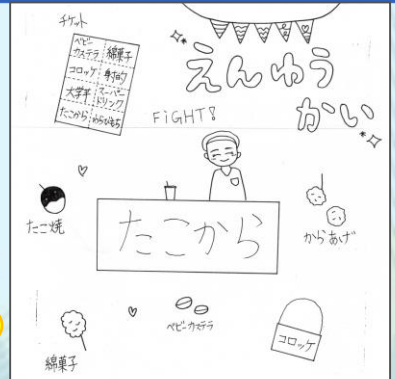 チケット
ベビーカステラ
綿菓子
コロッケ
射的
大学芋
スーパードリンク
たこから
わらびもち
えんゆう
かい
FiGHT!
たこ焼
たこから
からあげ
ベビーカステラ
綿菓子
コロッケ